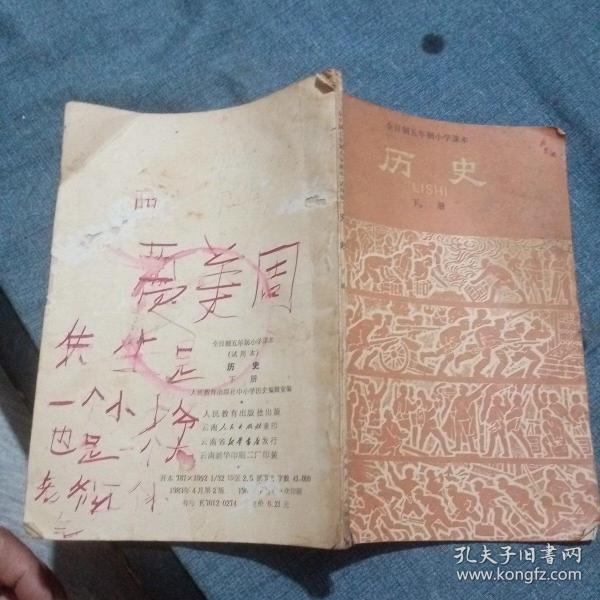 全日制五年制小学课本
历史
LISHI
下册
美周
先生是
一个小
也是一个大
全日制五年制小学课本
(试用本)
历史
下册
人民教育出版社中小学历史编辑室编
人民教育出版社出版
云南人民出版社重印
云南省新华书店发行
云南新华印刷二厂印装
开本 787×1092 1/32 印张 2.5 字数 41,000
1983年4月第2版
书号 K7012·0274 定价 0.23元
孔夫子旧书网
www.kongfz.com